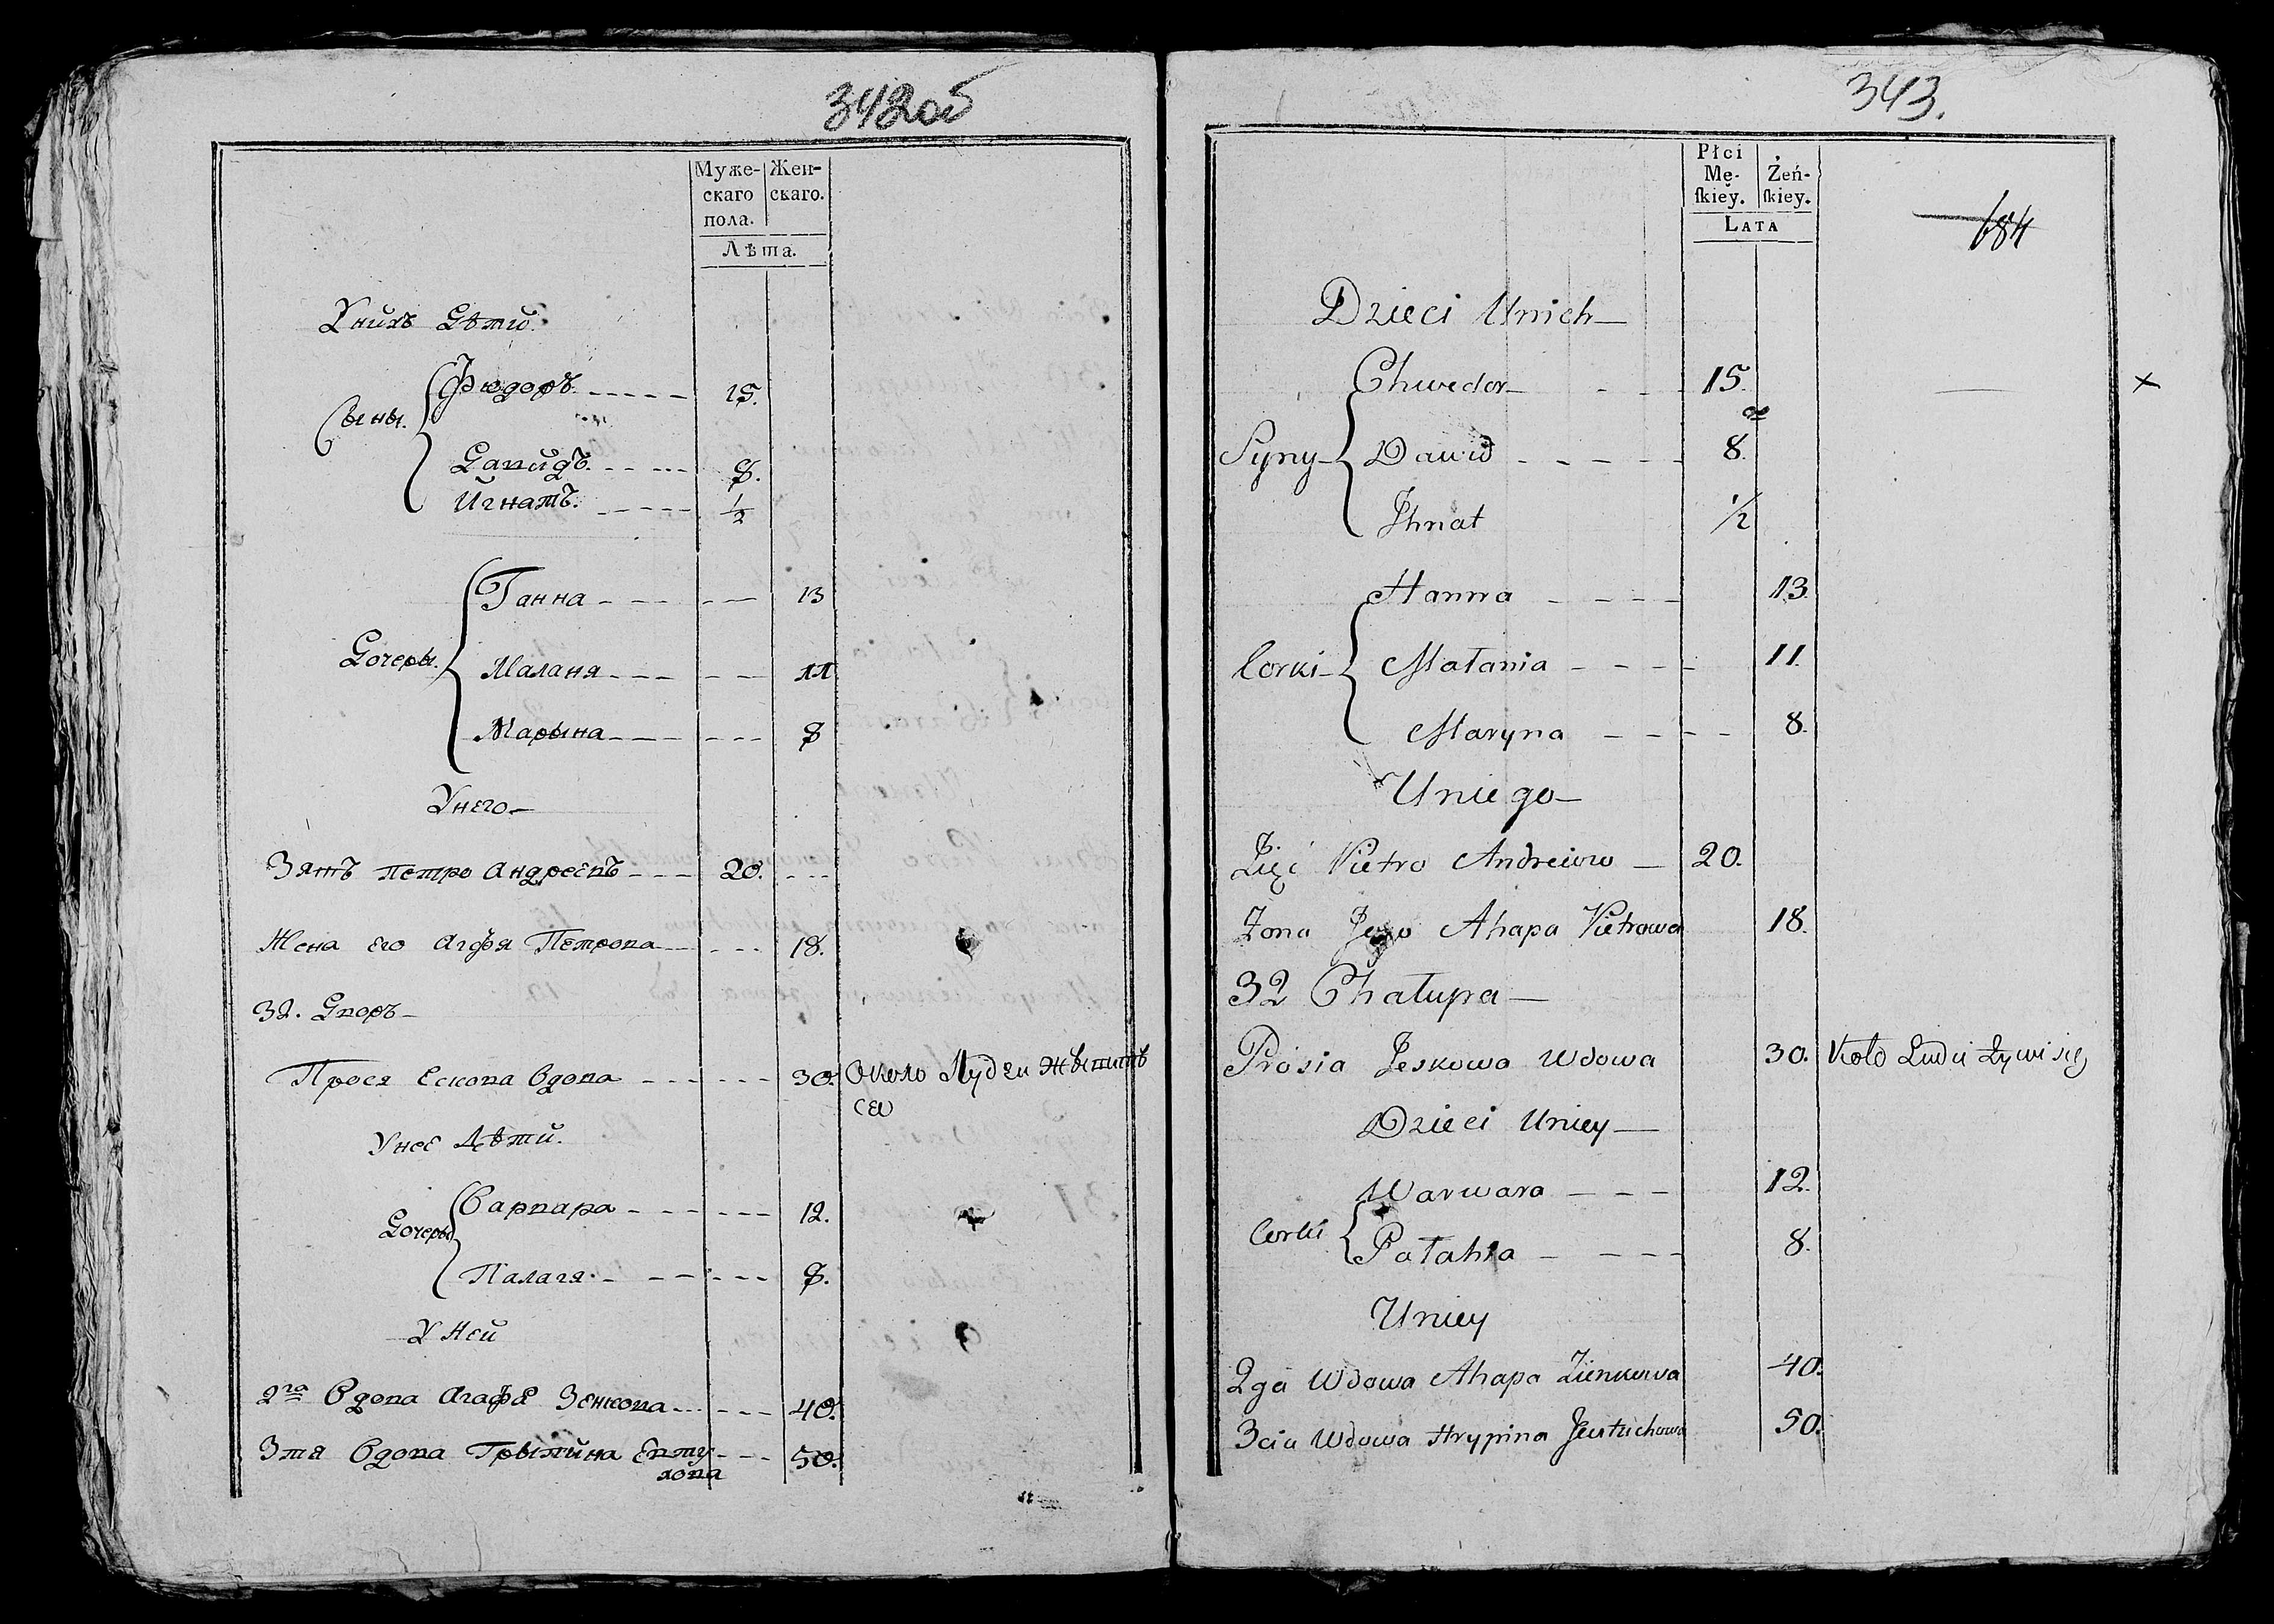 342об
Муже-
скаго
пола.
Жен-
скаго.
Лѣта.
Унихъ Дѣти.
Сыны.
Фюдоръ. 15.
Давидъ. 8.
Игнатъ. ½
Дочеры.
Ганна 13
Маланя 11
Марына 8
Унего
Зятъ петро Андреевъ 20.
Жена его Агафя Петрова 18.
32. Дворъ
Прося Ескова Вдова 30. Около Лудзи жывитъ
ся
Унее Дѣти.
Дочеры
Варвара 12.
Палагя. 8.
У Ней
2га Вдова Агафя Зенкова 40.
3тя Вдова Грыпина Евту
хова 50.
343.
Płci
Mę-
ſkiey.
Żeń-
ſkiey.
LATA
684
Dzieci Unich
Chwedor 15. x
Syny
Dawid 8.
Jhnat ½
Corki
Hanna 13.
Małania 11.
Maryna 8.
Uniego
Zięć Pietro Andreiow 20.
Zona Jego Ahapa Pietrowa 18.
32 Chałupa
Prosia Jeskowa Wdowa 30. Koło Ludzi Zywi się
Dzieci Uniey
Corki
Warwara 12.
Pałahia 8.
Uniey
2ga Wdowa Ahapa Zienkowa 40.
3cia Wdowa Hrypina Jewtuchowa 50.